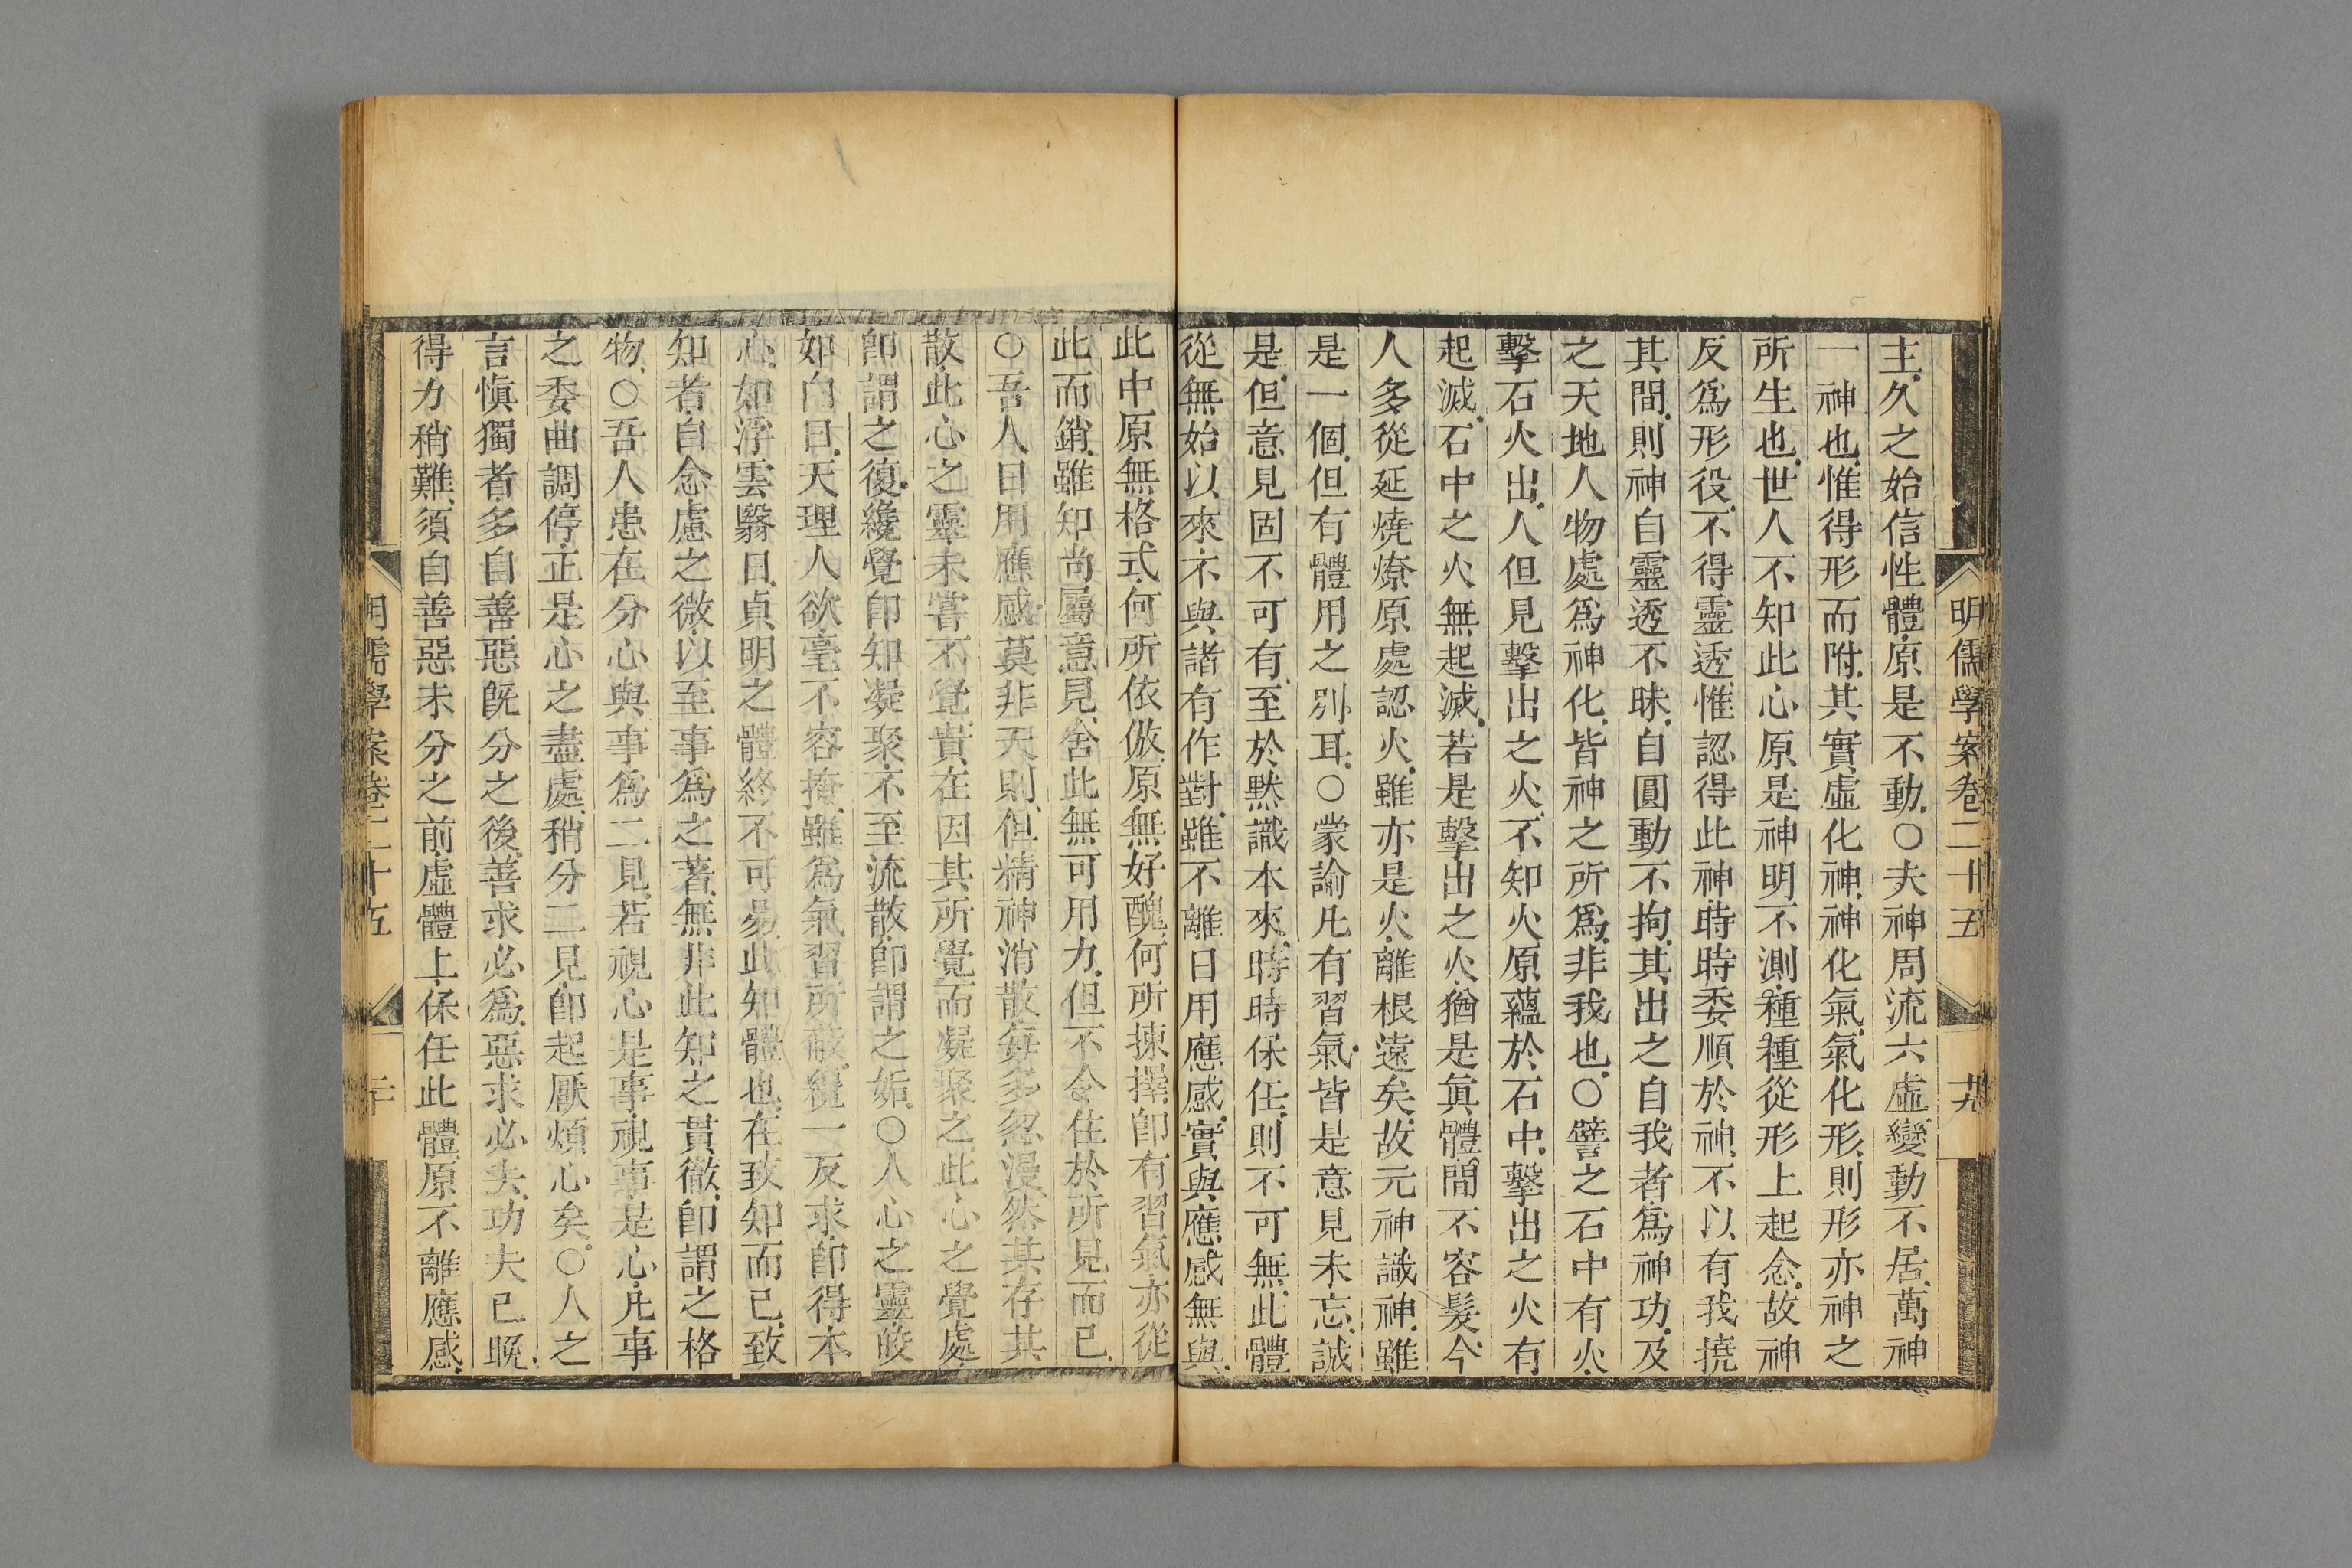 明儒學案卷二十五
十九
主久之始信性體原是不動○夫神周流六虛變動不居萬神
一神也惟得形而附其實虛化神神化氣氣化形則形亦神之
所生也世人不知此心原是神明不測種種從形上起念故神
反爲形役不得靈透惟認得此神時時委順於神不以有我撓
其間則神自靈透不昧自圓動不拘其出之自我者爲神功及
之天地人物處爲神化皆神之所爲非我也○譬之石中有火
擊石火出人但見擊出之火不知火原蘊於石中擊出之火有
起滅石中之火無起滅若是擊出之火猶是眞體間不容髮今
人多從延燒燎原處認火雖亦是火離根遠矣故元神識神雖
是一個但有體用之別耳○蒙諭凡有習氣皆是意見未忘誠
是但意見固不可有至於默識本來時時保任則不可無此體
從無始以來不與諸有作對雖不離日用應感實與應感無與
此中原無格式何所依倣原無好醜何所揀擇卽有習氣亦從
此而銷雖知尚屬意見舍此無可用力但不令住於所見而已
○吾人日用應感莫非天則但精神消散每多忽漫然其存其
散此心之靈未嘗不覺貴在因其所覺而凝聚之此心之覺處
卽謂之復纔覺卽知凝聚不至流散卽謂之姤○人心之靈皎
如白日天理人欲毫不容掩雖爲氣習所蔽纔一反求卽得本
心如浮雲翳日貞明之體終不可易此知體也在致知而已致
知者自念慮之微以至事爲之著無非此知之貫徹卽謂之格
物○吾人患在分心與事爲二見若視心是事視事是心凡事
之委曲調停正是心之盡處稍分二見卽起厭煩心矣○人之
言愼獨者多自善惡旣分之後善求必爲惡求必去功夫已晚
得力稍難須自善惡未分之前虛體上保任此體原不離應感
明儒學案卷二十五
二十